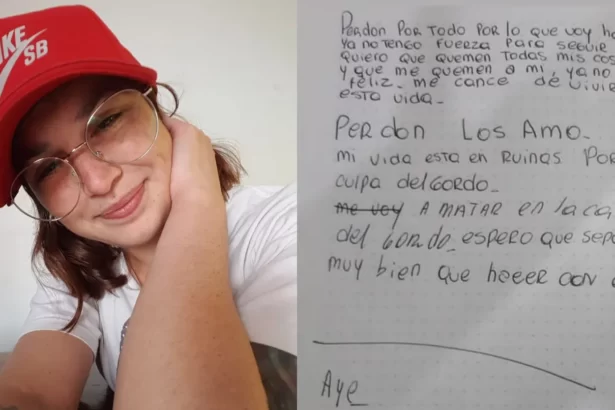 NIKE
SB
PERDON POR TODO POR LO QUE VOY
YA NO TENGO FUERZA PARA SEGUIR
QUIERO QUE QUEMEN TODAS MIS COS
Y QUE ME QUEMEN A MI, YA NO
FELIZ. ME CANCE DE VIVI
ESTA VIDA.
PERDON LOS AMO.
MI VIDA ESTA EN RUINAS POR
CULPA DEL GORDO.
me voy A MATAR en la ca
del GORDO. espero QUE SEPA
MUY bien QUE
Aye